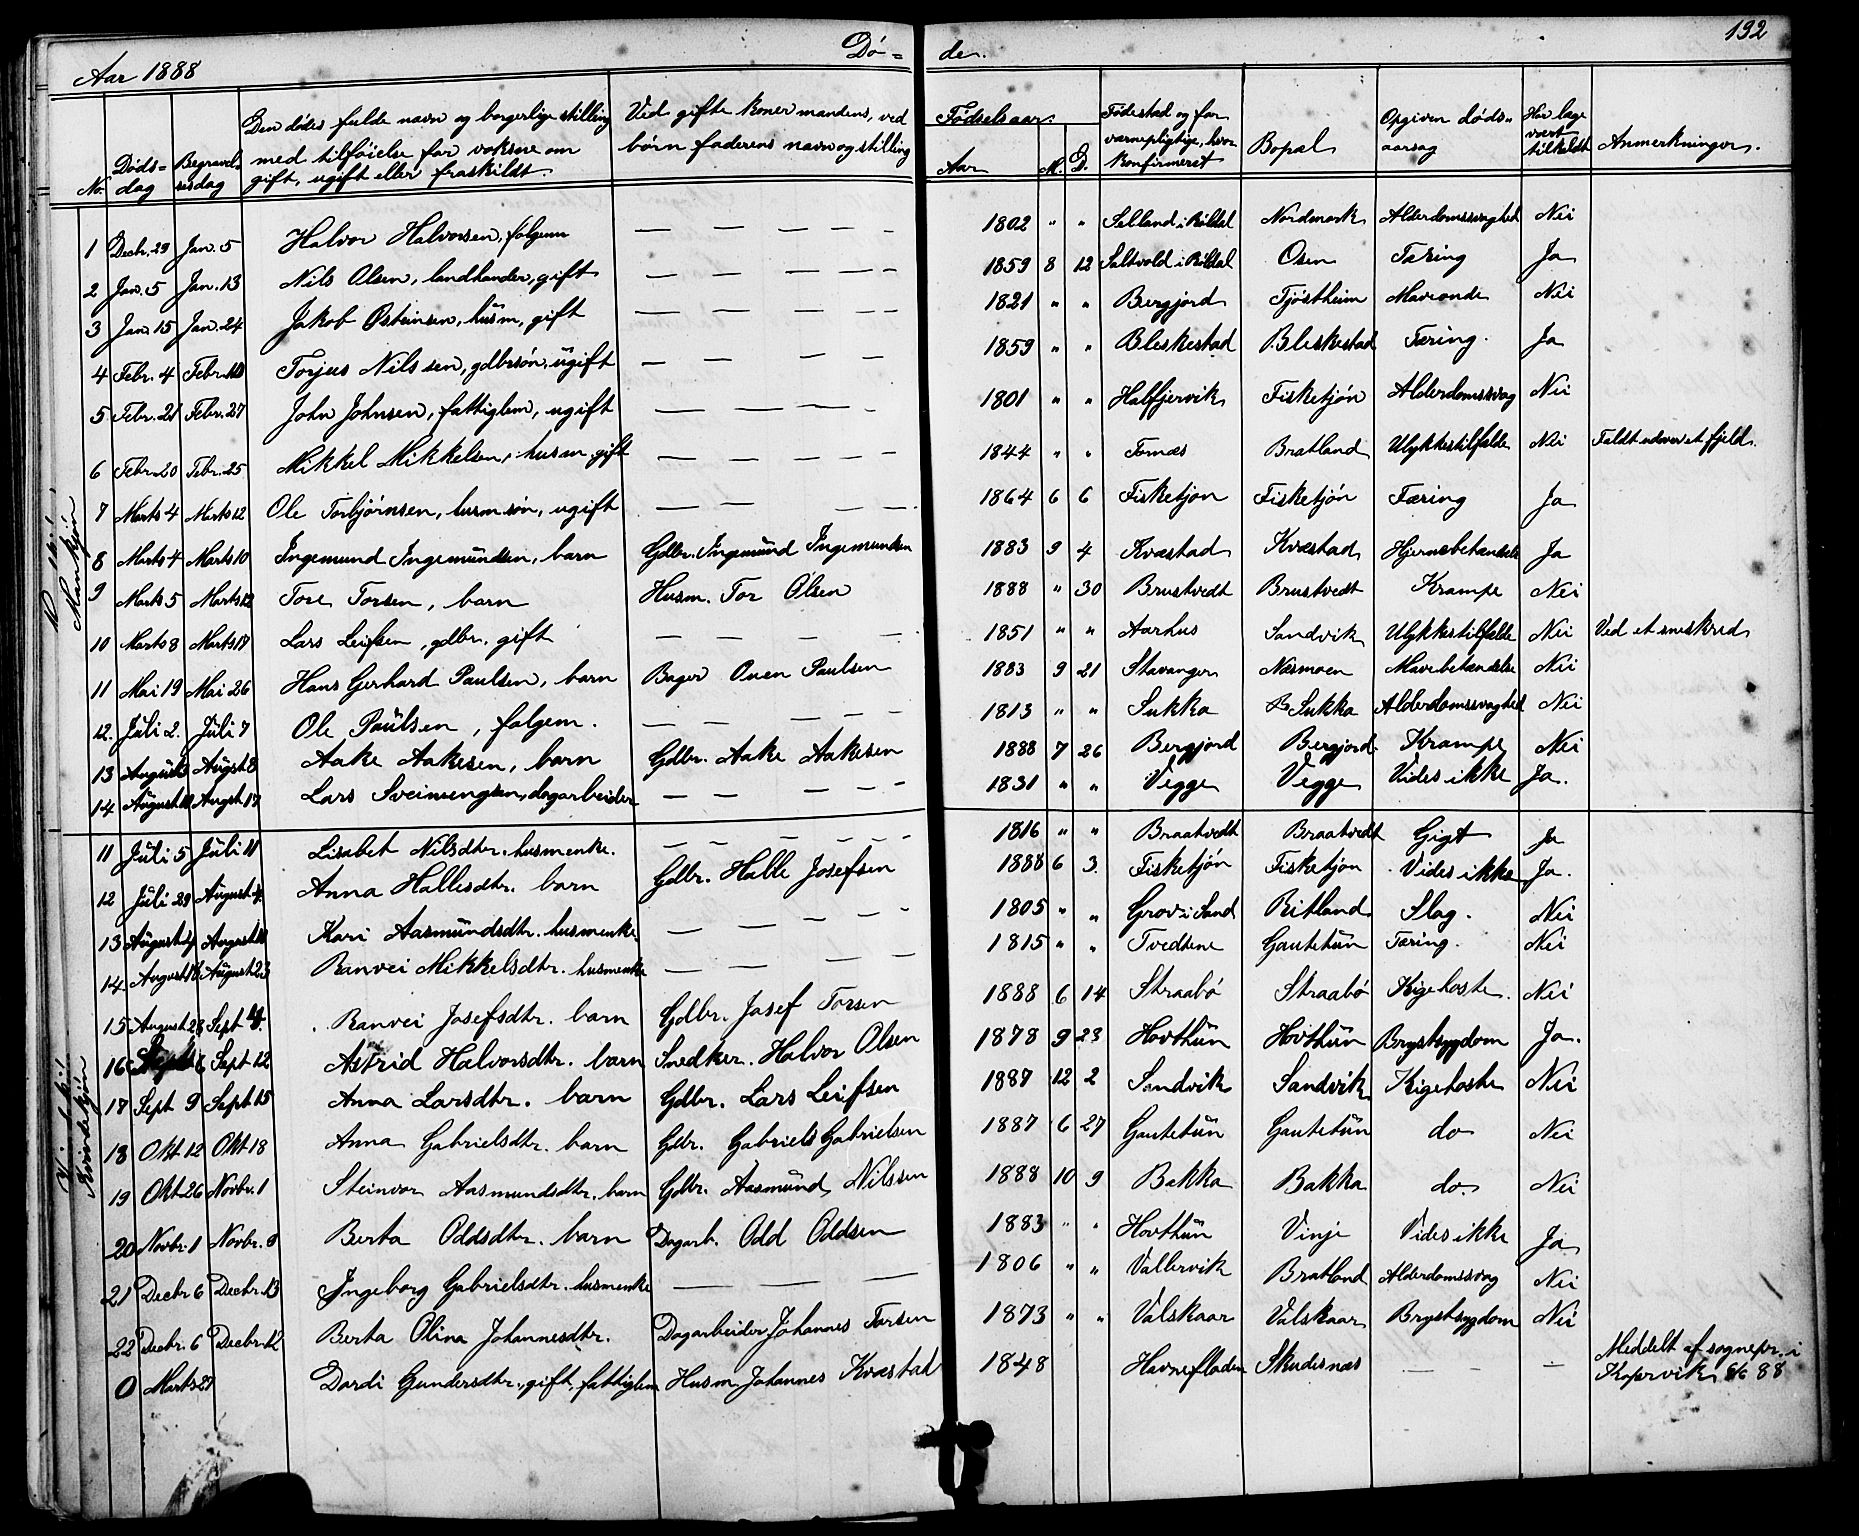 Aar 1888 Dö= de. 192
No. Dödsdag Begravelsesdag Den dödes fulde navn og borgerlige stilling med tilföielse for voksne om gift, ugift eller fraskildt. Ved gifte koner mandens, ved börn faderens navn og stilling Födselsaar. Aar M. D. Födestad og for værnepligtige, hvor konfirmeret Bopæl Opgiven dödsaarsag Har læge vært tilkaldt Anmerkninger.
Mankjön
1 Decbr. 29 Jan. 5 Halvor Halvorsen, folgem — — — — — 1802 " " Selland i Röldal Nordmork Alderdomssvaghed Nei
2 Jan. 5 Jan. 13 Nils Olsen, landhandler, gift — — — — — 1859 8 12 Saltvold i Röldal Osen Tæring Ja
3 Jan. 15 Jan. 24 Jakob Osteinsen, husm, gift — — — — — 1821 " " Bergjord Tjöstheim Maveonde Nei
4 Febr. 4 Febr. Torjus Nilssen, gdbrsön, ugift — — — — 1859 " " Bleskestad Bleskestad Tæring. Ja
5 Febr. 21 Febr. 27 John Johnsen, fattiglem, ugift — — — — 1801 " " Halfjervik Fisketjön Alderdomssvag Nei
6 Febr. 20 Febr. 25 Mikkel Mikkelsen, husm gift — — — — — 1844 " " Fornæs Bratland Ulykkestilfælde Nei Faldt udover et fjeld.
7 Marts 4 Marts 12 Ole Torbjörnsen, husmsön, ugift — — — — 1864 6 6 Fisketjön Fisketjön Tæring Ja
8 Marts 4 Marts 10 Ingemund Ingemundsen, barn Gdbr. Ingemund Ingemundsen 1883 9 4 Kvæstad Kvæstad Hjernebetændelse Ja
9 Marts 5 Marts 12 Tore Torsen, barn Husm. Tor Olsen 1888 " 30 Brustvedt Brustvedt Krampe Nei
10 Marts 8 Marts 17 Lars Leifsen, gdbr. gift — — — — — 1851 " " Aarhus Sandvik Ulykkestilfælde Nei Ved et sneskred
11 Mai 19 Mai 26 Hans Gerhard Paulsen, barn Bager Oven Paulsen 1883 9 21 Stavanger Næsmoen Mavebetændelse Nei
12. Juli 2. Juli 7 Ole Paulsen, folgem. — — — — — 1813 " " Sukka Sukka Alderdomssvaghed Nei
13 August 3 August 8 Aake Aakesen, barn Gdbr. Aake Aakesen 1888 7 26 Bergjord Bergjord. Krampe Nei
14 August Augst 17 Lars Sveinungsen, dagarbeider — — — — — 1831 " " Vegge Vegge Vides ikke Ja.
Kvindekjön
11 Juli 5 Juli 11 Lisabet Nilsdtr. husmenke. — — — — — 1816 " " Braatvedt Braatvedt Gigt Ja
12 Juli 29 August 4. Anna Hallesdtr. barn Gdbr. Halle Josefsen 1888 6 3. Fisketjön Fisketjön Vides ikke Ja.
13 August August Kari Aasmundsdtr. husmenke. — — — — — 1805 " " Grov i Sand Ritland Slag. Nei
14. August 18 August 23 Ranvei Mikkelsdtr. husmenke — — — — — 1815 " " Tvedtene Gautetun Tæring. Nei
15 August 28 Sept 4. Ranvei Josefsdtr. barn Gdbr. Josef Torsen 1888 6 14 Straabö Straabö Kigehoste. Nei
16 Sept 6 Sept 12 Astrid Halvorsdtr. barn Snedker. Halvor Olsen 1878 9 23 Hovthun Hovthun Brystsygdom Ja.
17 Sept 9 Sept 15 Anna Larsdtr. barn Gdbr. Lars Leifsen 1887 12 2 Sandvik Sandvik Kigehoste Nei
18 Okt 12 Okt 18 Anna Gabrielsdtr. barn Gdbr. Gabriels Gabrielsen 1887 6 27 Gautetun Gautetun do Nei
19 Okt 26 Novbr. 1 Steinvor Aasmundsdtr. barn Gdbr. Aasmund Nilssen 1888 10 9 Bakka Bakka do. Nei
20 Novbr. 1 Novbr. 8 Berta Oddsdtr. barn Dagarb. Odd Oddsen 1883 " " Hovthun Vinje Vides ikke Ja
21 Decbr 6 Decbr. 13 Ingeborg Gabrielsdtr. husmenke — — — 1806 " " Vallervik Bratland Alderdomssvag Nei
22 Decbr. 6 Decbr. 12 Berta Olina Johannesdtr. Dagarbeider Johannes Torsen 1873 " " Valskaar Valskaar Brystsygdom Nei
0 Marts 27 Dordi Gundersdtr, gift, fattiglem Husm Johannes Kvæstad 1848 Havnefladen Skudesnæs — — — Meddelt af sognepr. i Kopervik 88